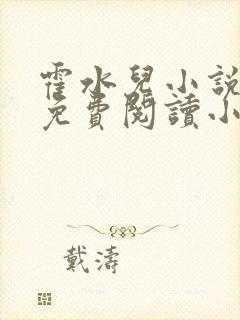 霍水兒小說
免費閱讀小
戴濤